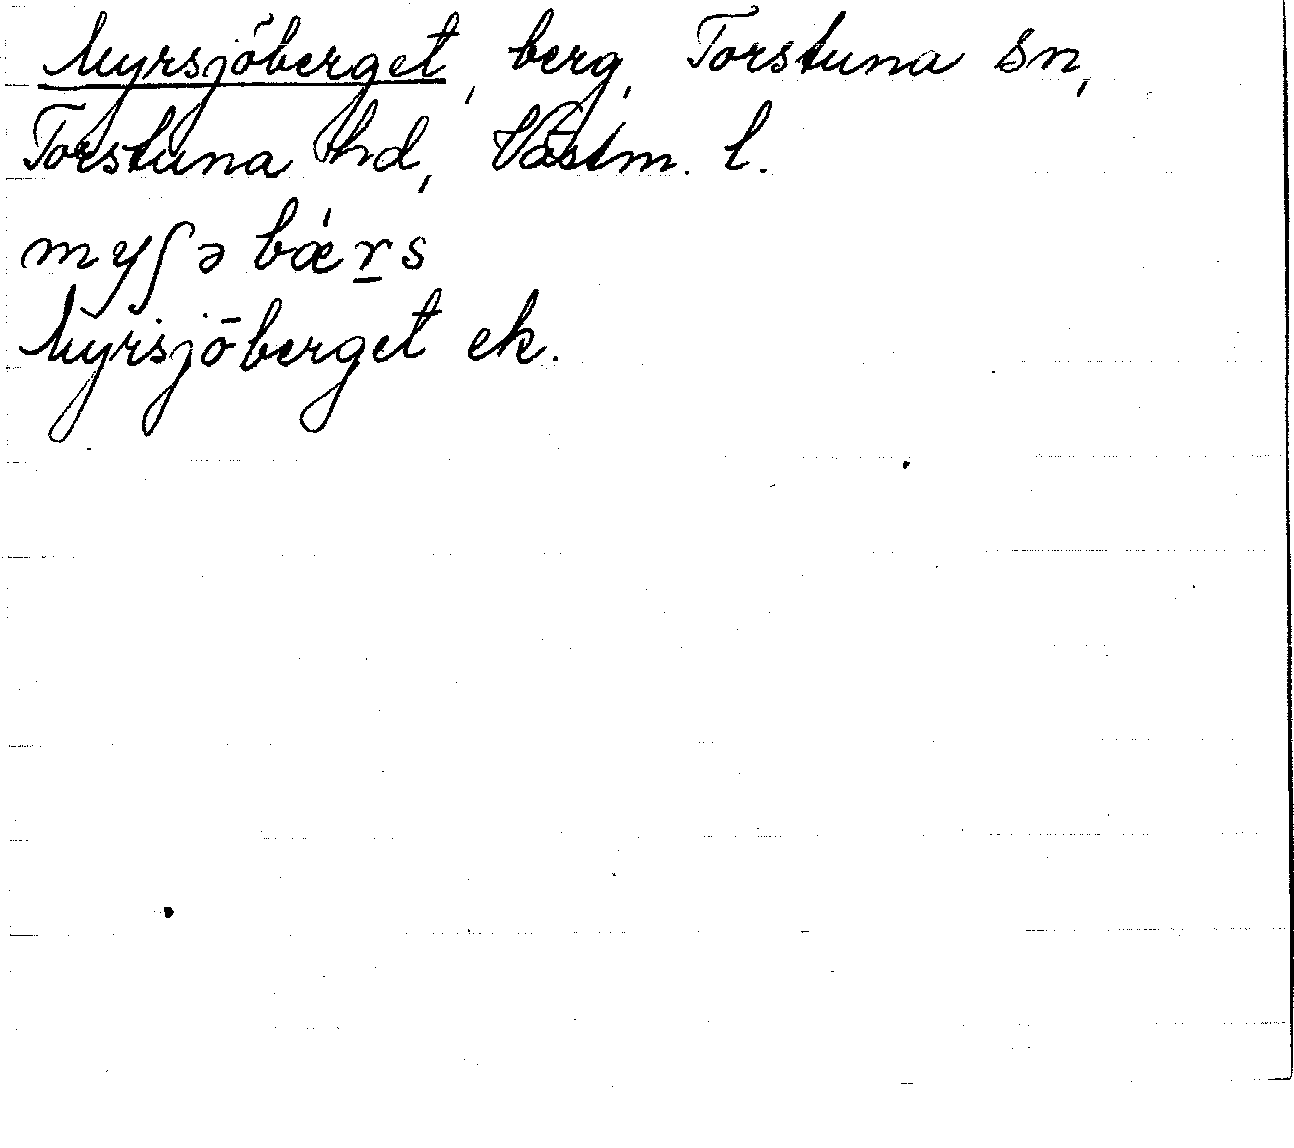 Myrsjöberget, berg, Torstuna sn,
Torstuna hd, Västm. l.
myʃəbæ̀r̲s
Myrsjöberget ek.